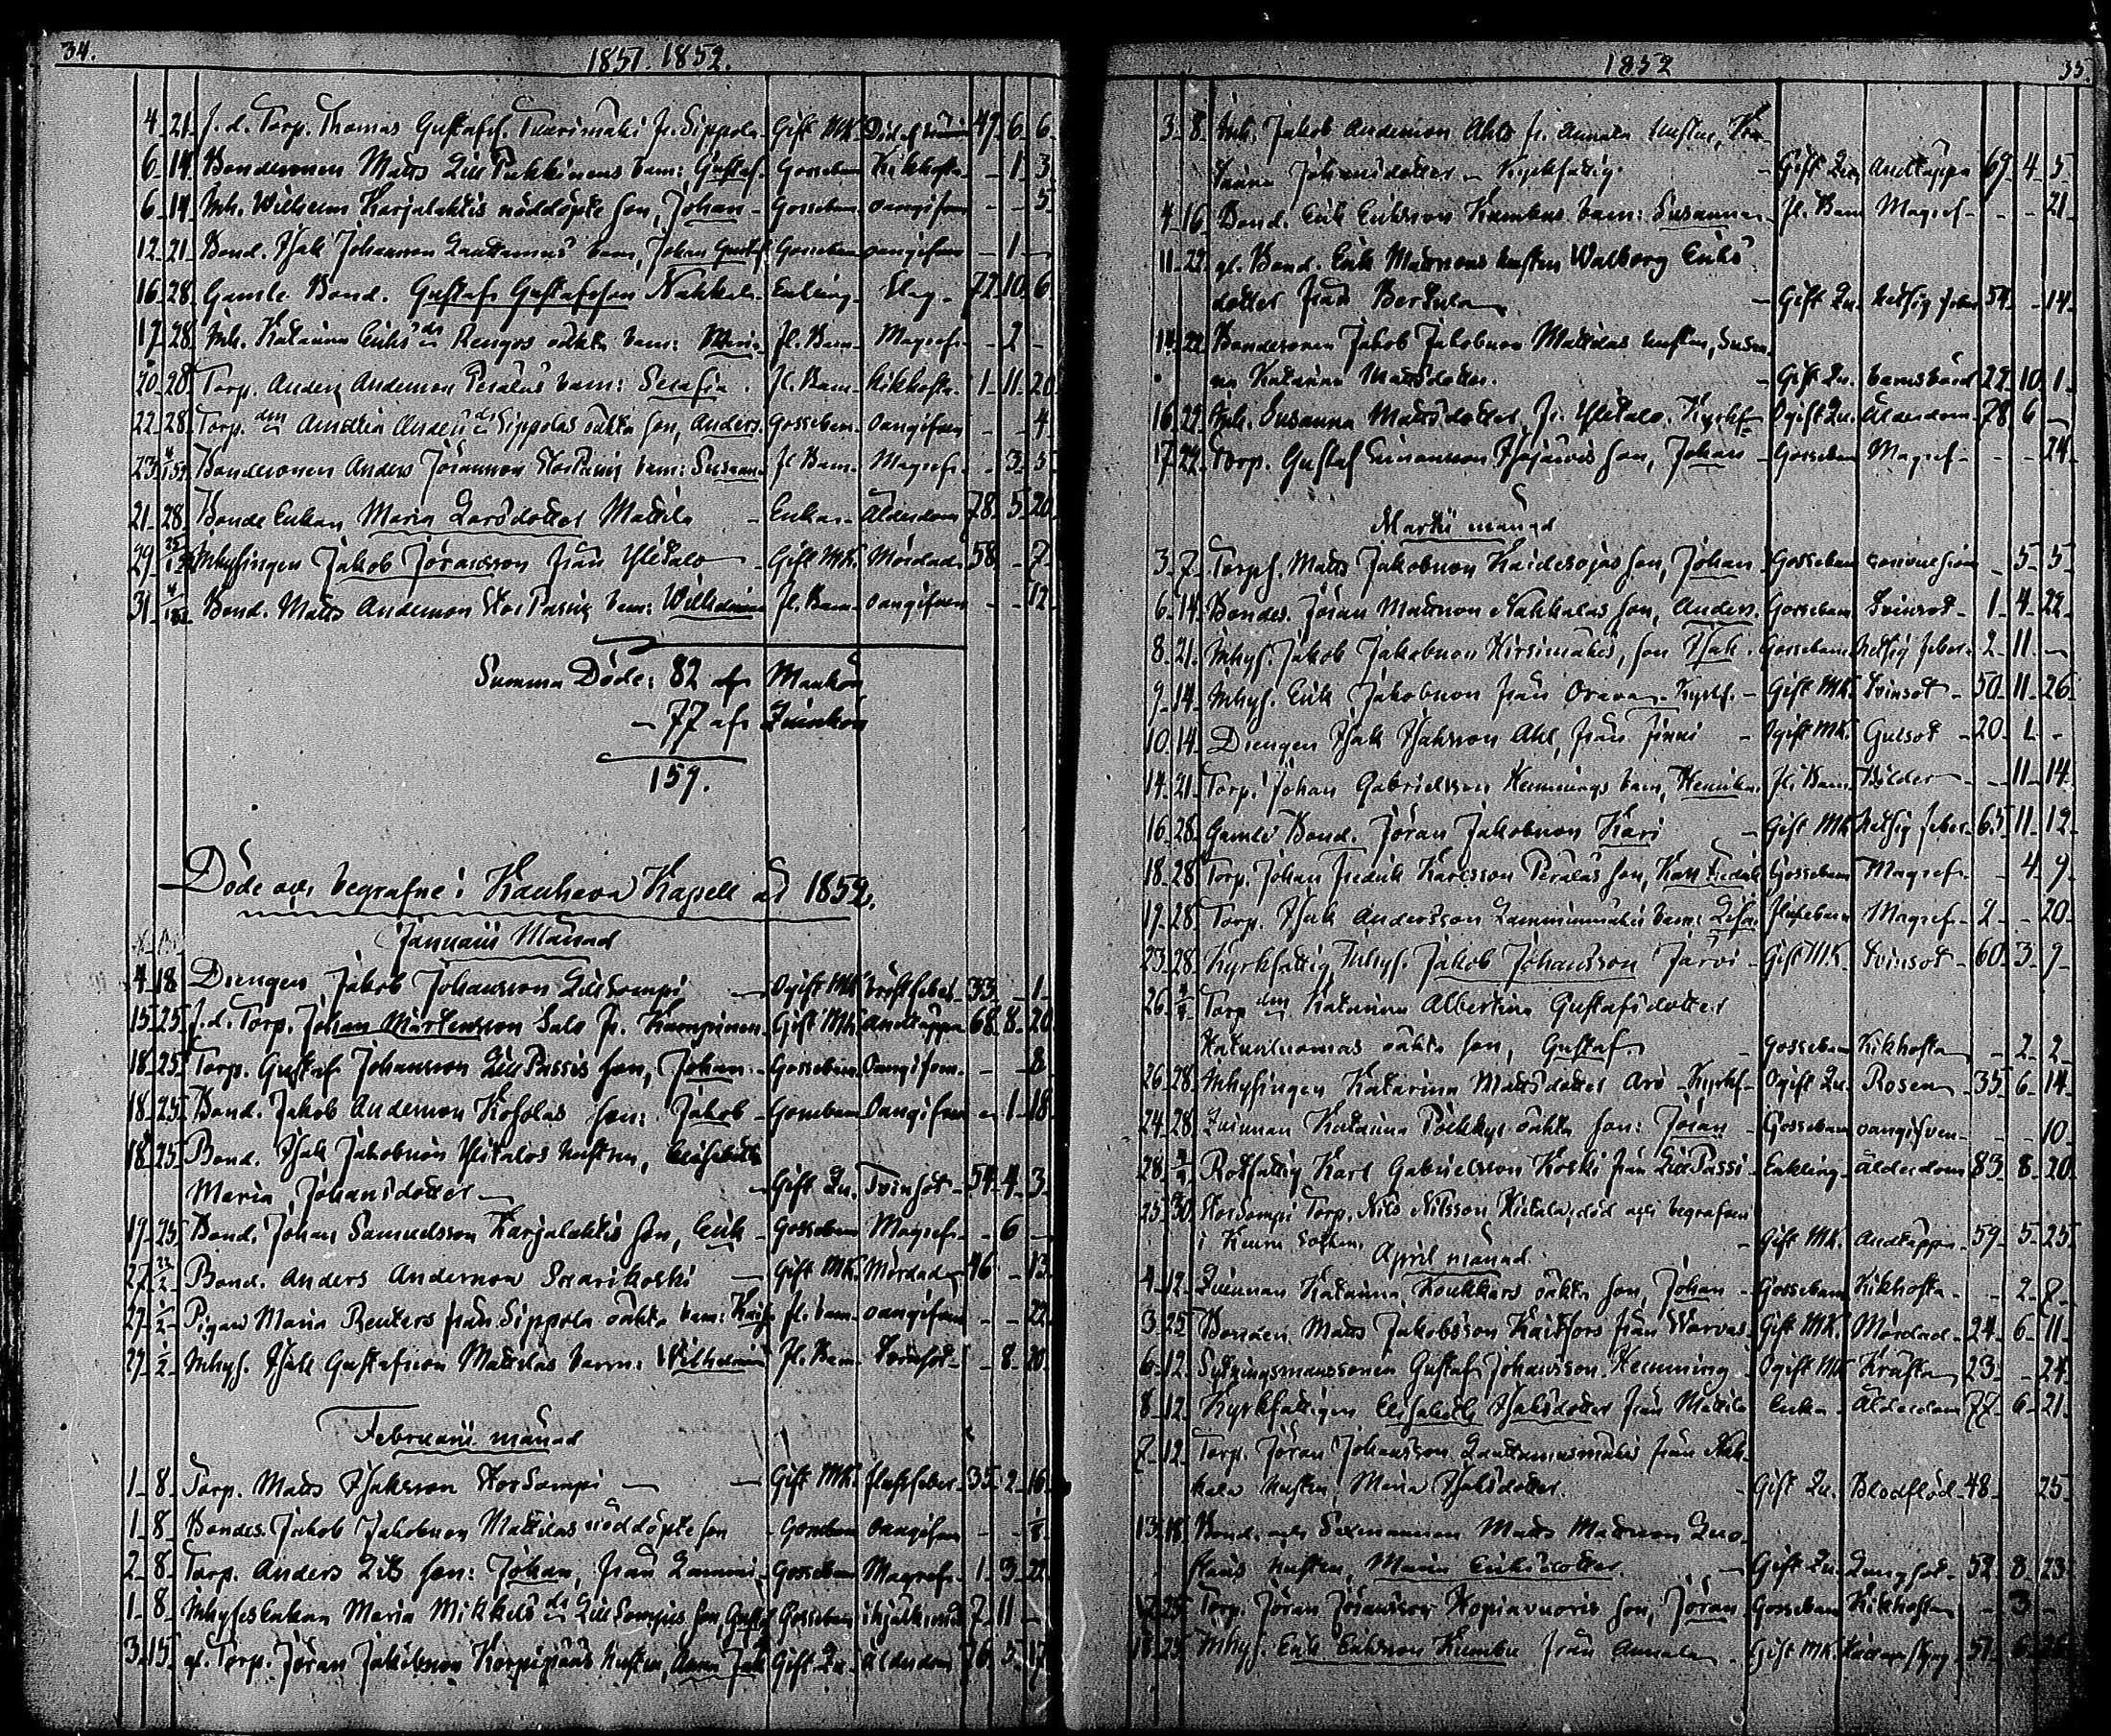 34.
1851. 1852.
4 21 f. d. Torp. Thomas Gustafss. Tuurimäki fr. Sippola Gift MK. 47 6 6
6 14 Bondesonen Matts Lill Pukkinens barn: Gustaf Gossebarn Kikhosta - 1 3
6 14 Inh. Wilhelm Karjalahtis nöddöpte son, Johan Gossebarn oangifven - - 5
12 21 Bond. Isak Johansson barn, Johan Gustaf Gossebarn oangifven - 1 -
16 28 Gamle Bond. Gustaf Gustafsson Nahkala Enkling Slag 72 10 6
17 28 Inh. Katarina Eriksdr Rengos oäkta barn: Maria fl. Barn Magref - 2 -
20 28 Torp. Anders Andersson Peräläs barn: Serafia fl. Barn Kikhosta 1 11 20
22 28 Torp. Sippolas oäkta son, Anders Gossebarn Oangifven - - 4
23 4/1 52 Bondesonen Anders Jöransson StorPassis barn: Susanna fl Barn Magref - 3 5
21 28 Bonde Enkan Maria Larsdotter Mattila Enka Ålderdom 78 5 20
29 Inhysingen Jakob Jöransson från Ylitalo Gift MK. Mördad 58 - 7
31 Bond. Matts Andersson Stor Passis barn: Wilhelmina fl. Barn oangifven - - 12
Summa Döde: 82 af Mankön
- 77 af Qvinnkön
159.
Döde och begrafne i Kauhava Kapell år 1852.
Januarii Månad
4 18 Drengen Jakob Johansson Lillsompi Ogift MK bröstfeber 33 - 1
15 25 f. d. Torp. Johan Mårtensson Salo fr. Kamppinen Gift MK Andtäppa 68 8 20
18 25 Torp. Gustaf Johansson Lill Passis son, Johan Gossebarn Oangifven - - 8
18 25 Bond. Jakob Andersson Kosolas son: Jakob Gossebarn Oangifven - 1 18
18 25 Bond. Isak Jakobsson Ylitalos hustru, Elisabeth
Maria Johansdotter Gift Qv. Tvinsot 54 4 3
19 25 Bond. Johan Samuelsson Karjalahtis son, Erik Gossebarn Magref - 6 -
22 Bond. Anders Andersson Saarikoski Gift MK. Mördad 46 - 13
27 1/2 Pigan Maria Reuters från Sippola oäkta barn: Kaisa fl. barn oangifven - - 22
27 1/2 Inhys. Isak Gustafsson Mattilas barn: Wilhelmina fl. Barn Tvinsot - 8 20
Februarii månad
1 8 Torp. Matts Isaksson Storsompi Gift MK. 35 2 16
1 8 Bondes. Jakob Jakobsson Mattilas nöddöpte son Gossebarn Oangifven
2 8 Torp. Anders Lills son: Johan, från Lammi Gossebarn Magref 1 3 22
1 8 Inhysesenkan Maria Mikkelsdr Lill Sompis son, Gustaf Gossebarn 7 11 -
3 15 gl. Torp. Jöran Jakobsson hustru, Anna Gift Qv. Ålderdom 76 5 17
1852
35.
3 8 Inh. Jakob Andersson Ahls fr. Annala hustru,
Johansdotter - Kyrkfattig Gift Qv. Andtäppa 69 4 5
4 16 Bond. Erik Eriksson Kumbus barn: Susanna fl. Barn Magref - - 21
11 22 gl. Bond. Erik Mattssons hustru Walborg Eriks
dotter från Bertula Gift Qv. hetsig feber 54 - 14
14 22 Bondesonen Jakob Jakobsson Mattilas hustru, Susan
na Katarina Mattsdotter. Gift Qv. barnsbörd 22 10 1
16 22 Inh. Susanna Mattsdotter, fr. Ylitalo. Kyrkf. Ogift Qv. Ålderdom 78 6 -
17 22 Torp. Gustaf Simonsson Isojärvis son, Johan Gossebarn Magref - - 24
Martii månad
3 7 Torps. Matts Jakobsson Kaidesojas son, Johan Gossebarn convulsion - 5 5
6 14 Bondes. Jöran Mattsson Nahkalas son, Anders Gossebarn Tvinsot 1 4 22
8 21 Inhys. Jakob Jakobsson Hirsimäkis, son Isak Gossebarn hetsig feber 2 11 -
9 14 Inhys. Erik Jakobsson från Orava Kyrkf. Gift MK. Tvinsot 50 11 26
10 14 Drengen Isak Isaksson Ahl, från Ogift MK. Gulsot 20 1 -
14 21 Torp. Johan Gabrielsson Hemmings barn, Henrika fl. Barn Bölder - 11 14
16 28 Gamle Bond. Jöran Jakobsson Kari Gift MK hetsig feber 65 11 12
18 28 Torp. Johan Fredrik Karlsson Peräläs son, Karl Fredrik Gossebarn Magref - 4 9
19 28 Torp. Isak Andersson Lamminmäkis barn: Lisa flickebarn Magref 2 - 20
23 28 Kyrkfattig Inhys. Jakob Johansson Järvi Gift MK. Tvinsot 60 3 9
26 Torp. Katarina Albertina Gustafsdotter
oäkta son, Gustaf Gossebarn Kikhosta - 2 2
26 28 Inhysingen Katarina Mattsdotter Aro Kyrkf. Ogift Qv. Rosen 35 6 14
24 28 Qvinnan Katarina oäkta son: Jöran Gossebarn oangifven - - 10
28 Rotfattig Karl Gabrielsson Koski från Lill Passi Enkling ålderdom 83 8 20
25 30 Storsompi Torp. Nils Nilsson Hietala, död och begrafven
i Socken. Gift MK. Andtäppa 59 5 25
April månad
4 12 Qvinnan Katarina Koukkars oäkta son, Johan Gossebarn Kikhosta - 2 8
3 25 Bonden Matts Jakobsson från Warvas Gift MK. Mördad 24 6 11
6 12 Gustaf Johansson Hemming Ogift MK Kräfta 23 - 24
8 12 Kyrkfattigen Elisabeth Isaksdotter från Mattila Enka Ålderdom 77 6 21
7 12 Torp. Jöran Johansson från Nah-
kala hustru, Maria Isaksdotter. Gift Qv. Blodflöd 48 25
13 18 Bond. och Sexmannen Matts Mattsson Luo-
hustru, Maria Eriksdotter. Gift Qv. Lungsot 52 8 23
17 25 Torp. Jöran Jöransson son, Jöran Gossebarn Kikhosta - 3 -
18 25 Inhys. Erik Eriksson Kumbu från Annala Gift MK. 51 6